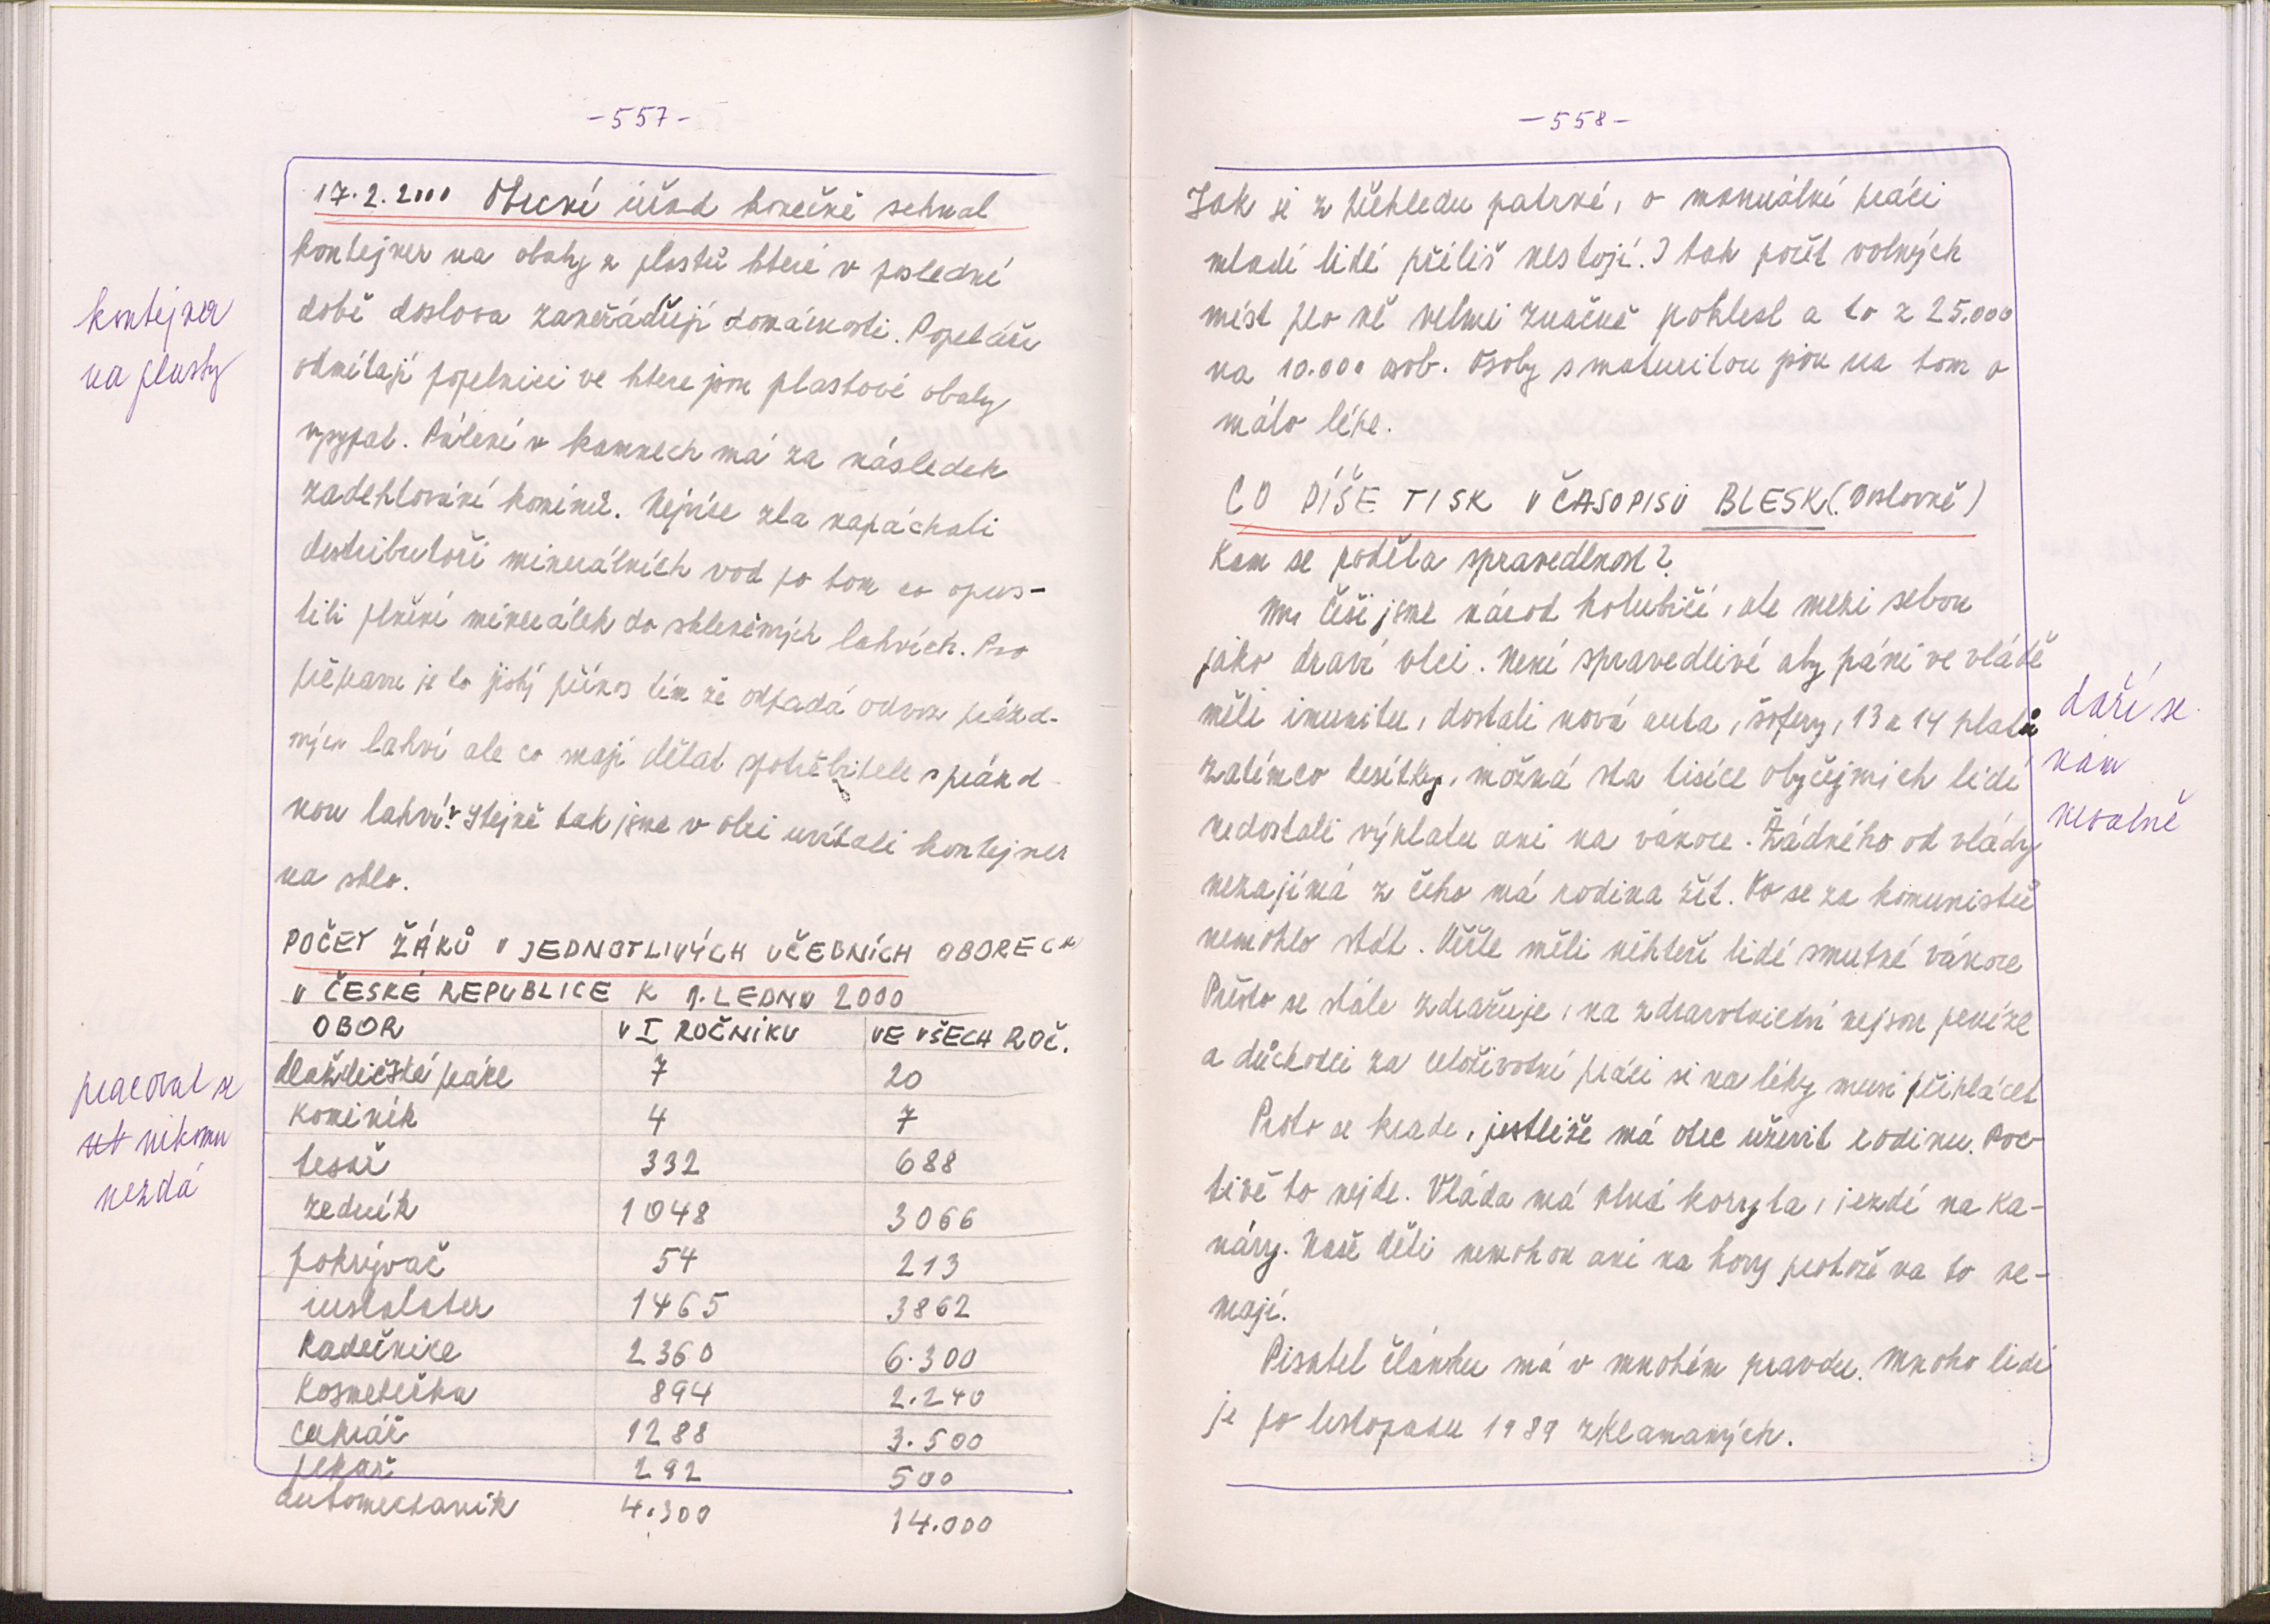 -557-
17.2.2000 Obecní úřad konečně sehnal
kontejner na obaly z plastů které v poslední
době doslova zaneřáďují domácnosti. Popeláři
odmítají popelnici ve které jsou plastové obaly
vysypat. Pálení v kamnech má za následek
zadehtování komínů. Nejvíce zla napáchali
distributoři minerálních vod po tom co opus-
tili plnění minerálek do skleněných lahvích. Pro
přepravu je to jistý přínos tím že odpadá odvoz prázd-
ných lahví ale co mají dělat spotřebitele s prázd
nou lahví? Stejně tak jsme v obci uvítali kontejner
na sklo.
kontejner
na plasty
POČET ŽÁKŮ V JEDNOTLIVÝCH UČEBNÍCH OBORECH
V ČESKÉ REPUBLICE K 1. LEDNU 2000
OBOR V I ROČNÍKU VE VŠECH ROČ.
dlaždičská práce 7 20
kominík 4 7
tesař 332 688
zedník 1048 3066
pokrývač 54 213
instalater 1465 3862
Kadeřnice 2360 6.300
Kosmetička 894 2.240
cukrář 1288 3.500
pekař 292 500
automechanik 4.300 14.000
pracovat se
nikomu
nezdá
-558-
Jak je z přehledu patrné, o manuální práci
mladí lidé příliš nestojí. I tak počet volných
míst pro ně velmi značně poklesl a to z 25.000
na 10.000 osob. Osoby s maturitou jsou na tom o
málo lépe.
CO PÍŠE TISK V ČASOPISU BLESK (Doslovně)
Kam se poděla spravedlnost?
My Češi jsme národ holubičí, ale mezi sebou
jako draví vlci. Není spravedlivé aby páni ve vládě
měli imunitu, dostali nová auta, šofery, 13 a 14 platů
zatímco desítky, možná sta tisíce obyčejných lidí
nedostali výplatu ani na vánoce. Žádného od vlády
nezajímá z čeho má rodina žít. To se za komunistů
nemohlo stát. Věřte měli někteří lidé smutné vánoce
Přesto se stále zdražuje, na zdravotnictví nejsou peníze
a důchodci za celoživotní práci si na léky musí připlácet
Proto se krade, jestliže má otec uživit rodinu. Poc-
tivě to nejde. Vláda má plná koryta, jezdí na Ka-
náry. Naše děti nemohou ani na hory protože na to ne-
mají.
Pisatel článku má v mnohém pravdu. Mnoho lidí
je po listopadu 1989 zklamaných.
daří se
nám
nevalně